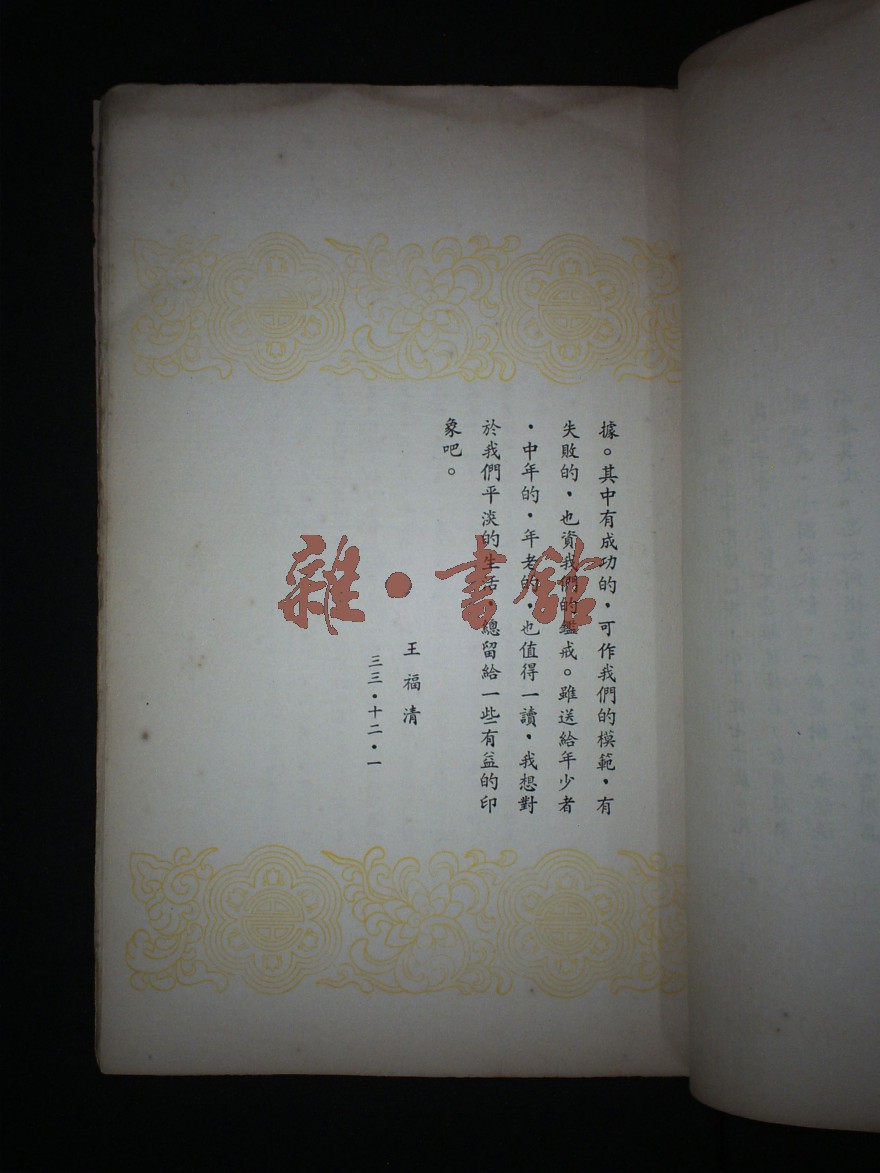 據。其中有成功的，可作我們的模範，有
失敗的，也資我們的鑑戒。雖送給年少者
，中年的，年老的，也值得一讀，我想對
於我們平淡的生活，總留給一些有益的印
象吧。
王福清
三三・十二・一
雜・書館